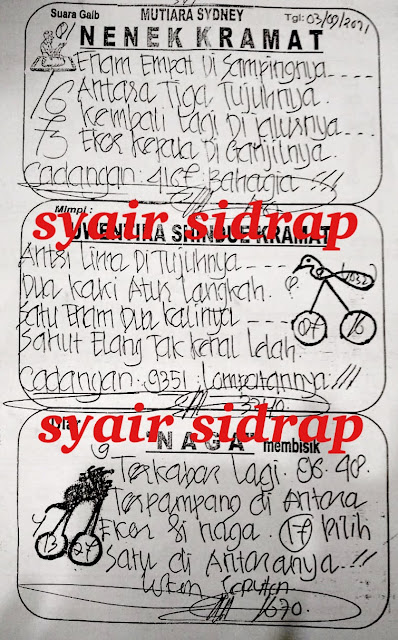 Suara Gaib MUTIARA SYDNEY Tgl: 03/09/2021
NENEK KRAMAT
Enam Empat Di Sampingnya ----
16 Antara Tiga Tujuhnya.
Kembali Lagi Di Jalurnya ----
73 Ekor Kepala Di Ganjilnya.
Cadangan: 4168 Bahagia !!!
syair sidrap
Mimpi :
KRAMAT
Antri Lima Di Tujuhnya ----
Dua Kaki Atur Langkah.
Satu Enam Dua Kalinya ----
07 16
Sahut Elang Tak Kenal Lelah.
Cadangan: 9351 Lompatannya !!!
syair sidrap
"NAGA" membisik
Terkabar Lagi. 96. 48.
Terpampang di Antara
Ekor Si Naga. 17 Pilih
13 27
Satu di Antaranya !!
1670.